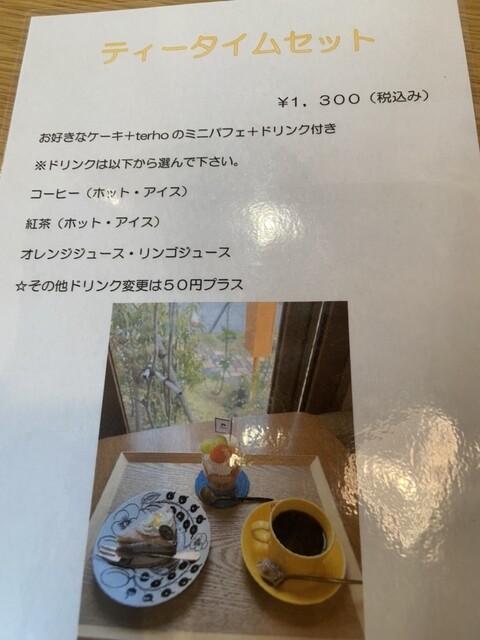 ティータイムセット
¥1，300（税込み）
お好きなケーキ＋terhoのミニパフェ＋ドリンク付き
※ドリンクは以下から選んで下さい。
コーヒー（ホット・アイス）
紅茶（ホット・アイス）
オレンジジュース・リンゴジュース
☆その他ドリンク変更は５０円プラス